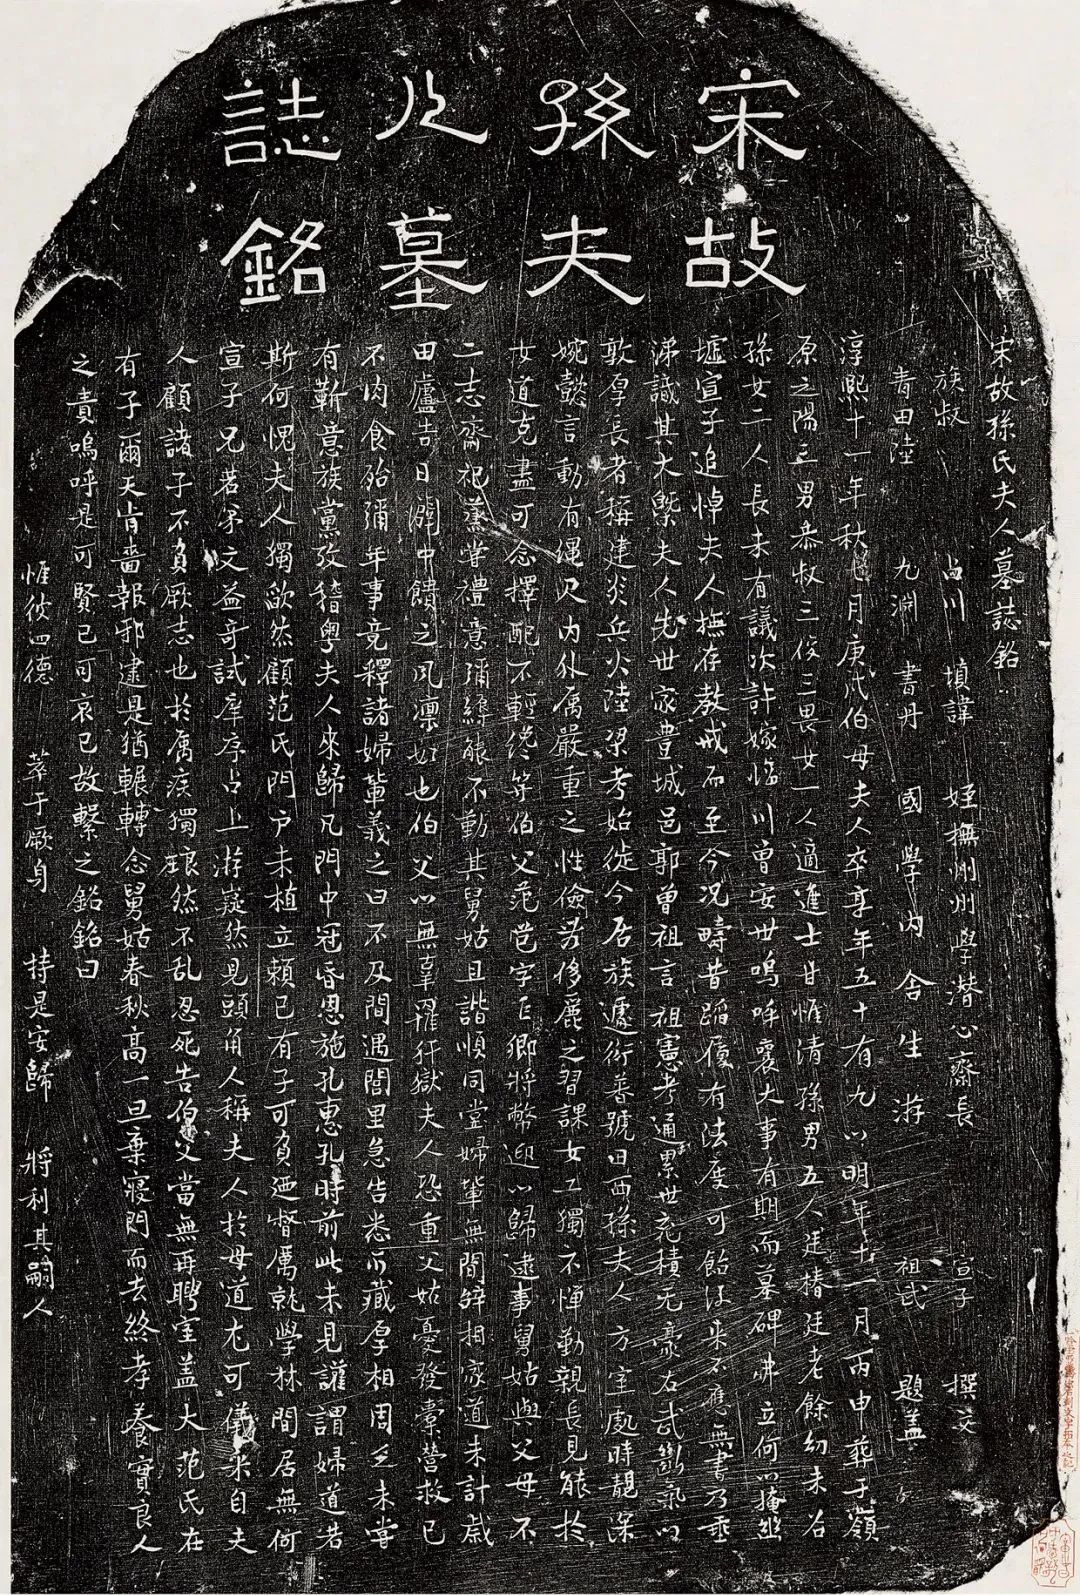 宋故
孫夫
人墓
誌銘
宋故孫氏夫人墓誌銘
族叔 占川 填諱 姪撫州州學潛心齋長 宣子 撰文
青田陸 九淵 書丹 國學內舍生游 祖武 題盖
淳熙十一年秋七月庚戌伯母夫人卒享年五十有九以明年十一月丙申葬于嶺
原之陽三男恭叔三俊三畏女一人適進士甘惟清孫男五人廷椿廷老餘幼未名
孫女二人長未有議次許嫁臨川曾安世嗚呼襄大事有期而墓碑弗立何以掩幽
墟宣子追悼夫人撫存教戒而至今況疇昔蹈履有法度可飴後來不應無書乃垂
涕識其大槩夫人先世家豊城邑郭曾祖言祖憲考通累世充積无豪右武斷氣以
敦厚長者稱建炎兵火陸梁考始徙今居族遽衍蕃號曰西孫夫人方室處時靚深
婉懿言動有繩尺內外厲嚴重之性儉勞侈麗之習課女工獨不憚勤親長見能於
女道克盡可念擇配不輕纔笄伯父范 字 卿將幣迎以歸逮事舅姑與父母不
二志齋祀蒸甞禮意彌縟能不動其舅姑且諧順同堂婦輩無間辞相家道未計歲
田廬告日闢中饋之風凛如也伯父以無辜罹犴獄夫人恐重父姑憂發橐營救已
不肉食殆彌年事竟釋諸婦輩義之曰不及間遇閭里急告悉所藏厚相周乏未甞
有靳意族黨攷稽粵夫人來歸凡門中冠昏恩施孔惠孔時前此未見讙謂婦道若
斯何愧夫人獨欿然顧范氏門户未植立賴已有子可負迺督厲就學林間居無何
宣子兄若弟文益奇試庠序占上游嶷然見頭角人稱夫人於母道尤可儀米自夫
人顧諸子不負厥志也於厲疾獨琅然不乱忍死告伯父當無再聘室盖大范氏在
有子爾天肯嗇報邪逮是猶輾轉念舅姑春秋高一旦棄寢閍而去終孝養實良人
之責嗚呼是可賢已可哀已故繫之銘銘曰
惟彼四德 萃于厥身 持是安歸 將利其嗣人